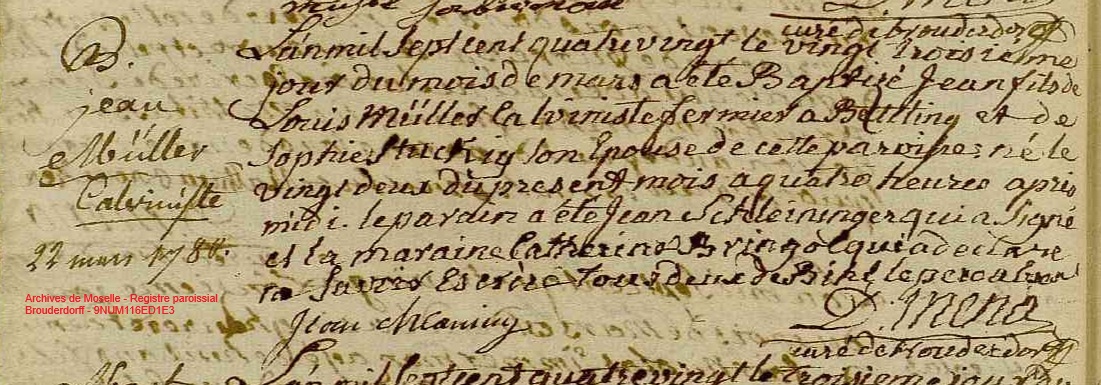 curé de brouderdorff
B.
jean
Müller
Calviniste
22 mars 1780.
L'an mil sept cent quatre vingt le vingt troisieme
jour du mois de mars a eté Baptizé Jean fils de
Louis Müller Calviniste fermier a Bettling et de
Sophie Stuckig son Epouse de cette paroisse; né le
vingt deux du present mois a quatre heures apris
midi. le parain a eté Jean Schleininger qui a signé
et la maraine Catherine qui a declaré
ne savoir Escrire tous deux de le pere absent
Jean
D. Mena
curé de brouderdorff
L'an mil sept cent quatre vingt le troisieme jour
Archives de Moselle - Registre paroissial
Brouderdorff - 9NUM116ED1E3